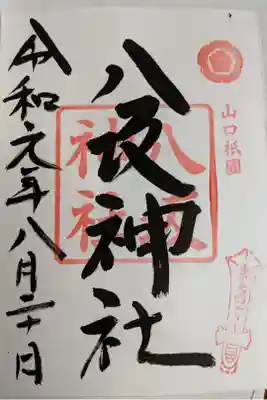 山口祇園
八坂神社
八坂神社
令和元年八月二十日